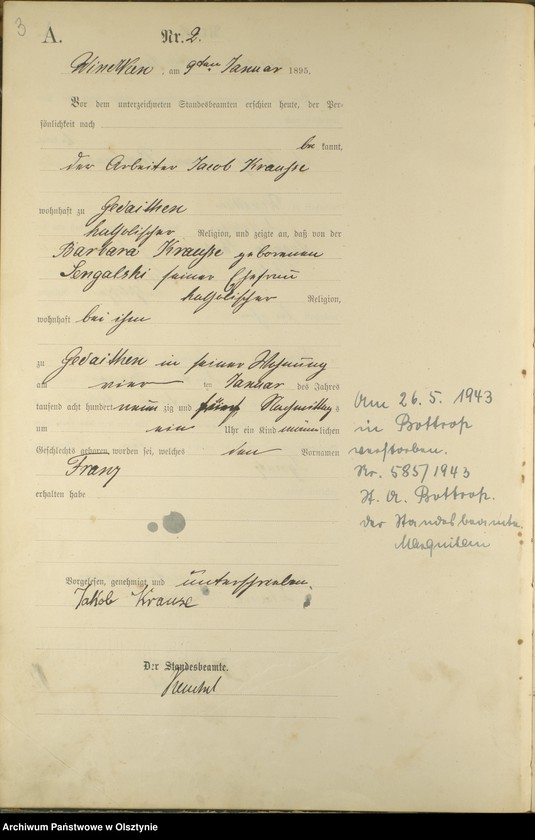 3
A.
Nr. 2.
am 9ten Januar 1895.
Vor dem unterzeichneten Standesbeamten erschien heute, der Per-
sönlichkeit nach
be kannt,
der Arbeiter Jacob Krauße
wohnhaft zu Gedaithen
katholischer Religion, und zeigte an, daß von der
Barbara Krauße geborenen
Sengalski seiner Ehefrau
katholischer Religion,
wohnhaft bei ihm
zu Gedaithen in seiner Wohnung
am vier ten Januar des Jahres
tausend acht hundert neun zig und fünf Nachmittags
um ein Uhr ein Kind männlichen
Geschlechts geboren worden sei, welches den Vornamen
Franz
erhalten habe
Vorgelesen, genehmigt und unterschrieben.
Jakob Krause
Der Standesbeamte.
Am 26. 5. 1943
in Bottrop
verstorben.
Nr. 585/1943
St. A. Bottrop.
Der Standesbeamte.
Archiwum Państwowe w Olsztynie